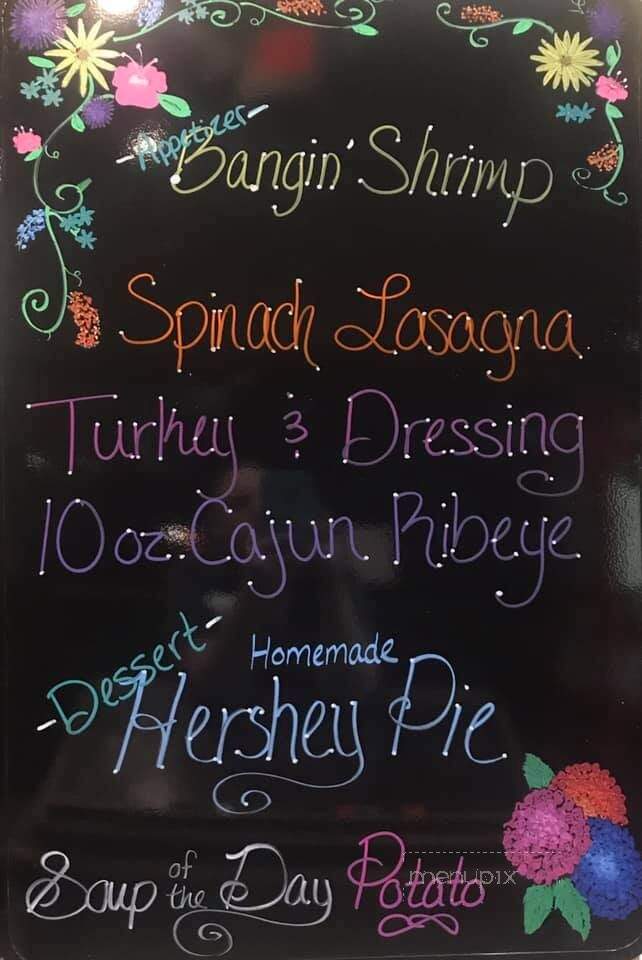 -Appetizer-
Bangin' Shrimp
Spinach Lasagna
Turkey & Dressing
10 oz. Cajun Ribeye
-Dessert-
Homemade
Hershey Pie
Soup of the Day Potato
menupix